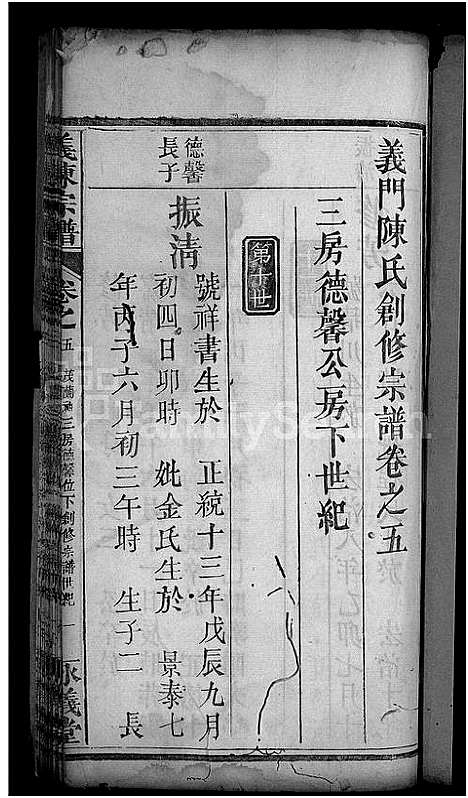 義門陳氏創修宗譜卷之五
三房德馨公房下世紀
第十世
德馨
長子
振清
號祥書生於　正統十三年戊辰九月
初四日卯時　妣金氏生於　景泰七
年丙子六月初三午時　生子二　長
義陳宗譜
卷之五
三房德馨位下創修宗譜世紀　一
義堂
FamilySearch